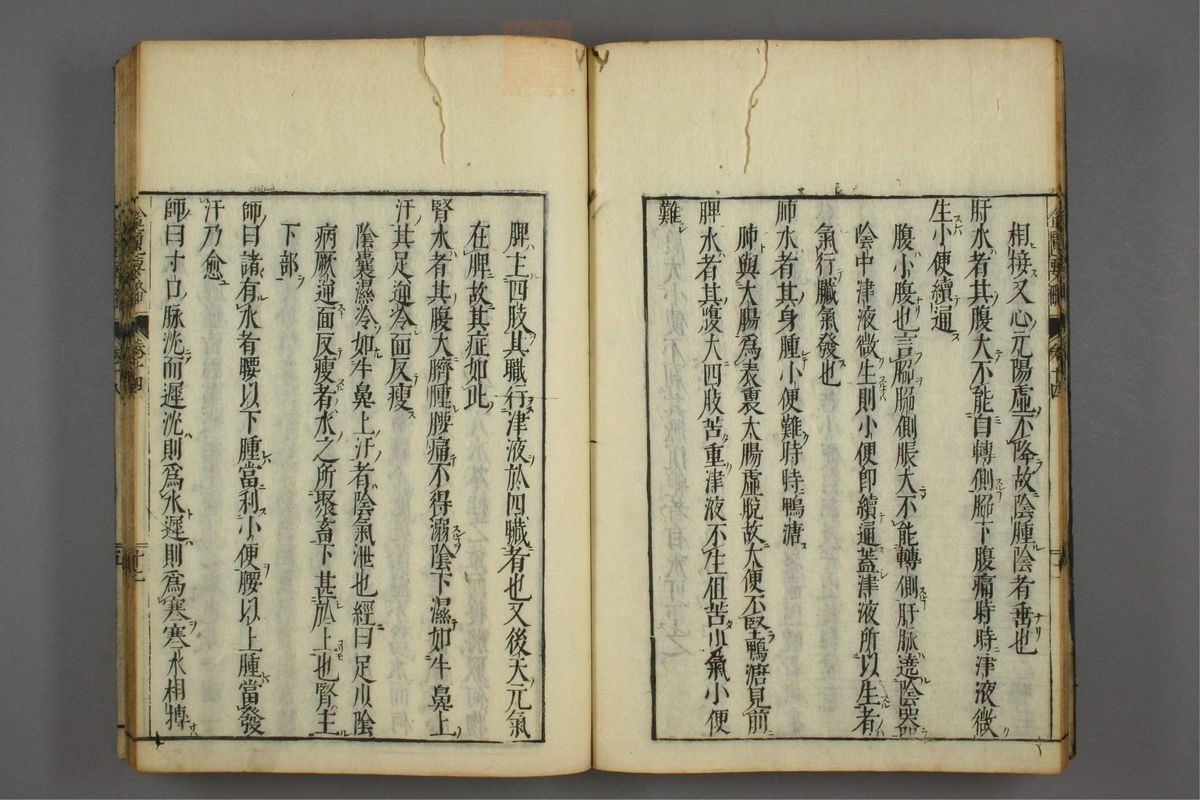 相接又心元陽虛不降故陰腫陰者垂也
肝水者其腹大不能自轉側脇下腹痛時時津液微
生小便續通
腹小腹也言脇脇側脹大不能轉側肝脉遶陰器
陰中津液微生則小便卽續通蓋津液所以生者
氣行臟氣發也
肺水者其身腫小便難時時鴨溏
肺與大腸爲表裏大腸虛脫故大便不堅鴨溏見前
脾水者其腹大四肢苦重津液不生但苦少氣小便
難
脾主四肢其職行津液於四臟者也又後天元氣
在脾故其症如此
腎水者其腹大臍腫腰痛不得溺陰下濕如牛鼻上
汗其足逆冷面反瘦
陰囊濕冷如牛鼻上汗者陰氣泄也經曰足少陰
病厥逆面反瘦者水之所聚畜下甚於上也腎主
下部
師曰諸有水者腰以下腫當利小便腰以上腫當發
汗乃愈
師曰寸口脉沈而遲沈則爲水遲則爲寒寒水相搏